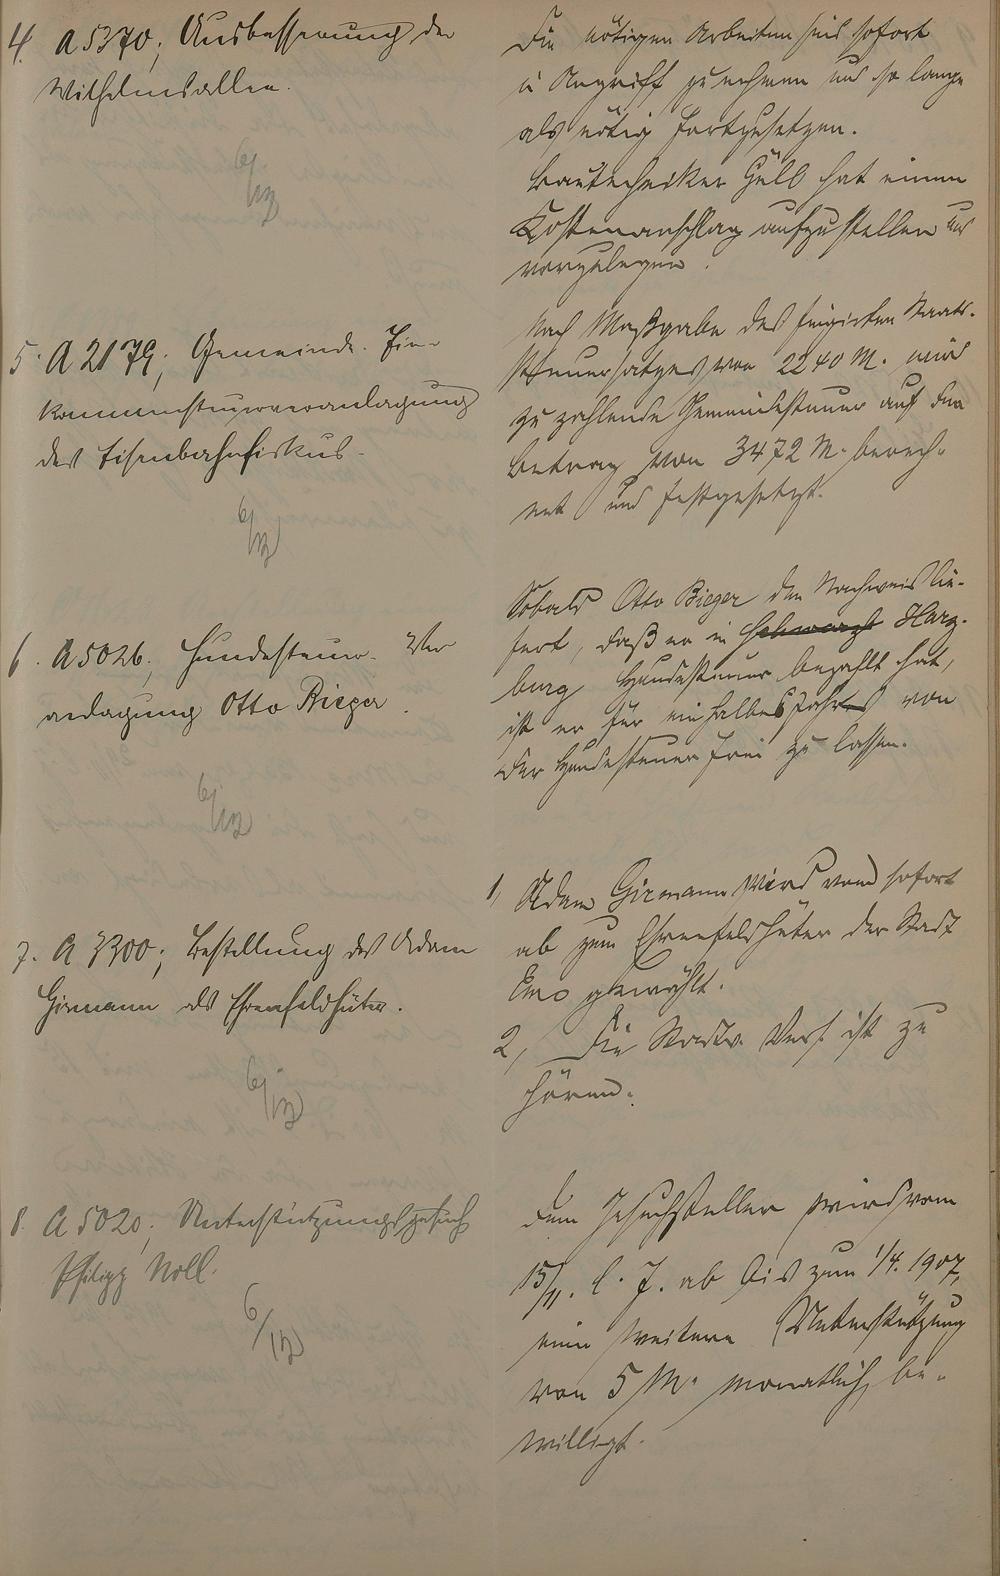 4. A 5370; Ausbesserung der
Wilhelmsallee.
6/12
Die nötigen Arbeiten sind sofort
in Angriff zu nehmen und so lange
als nötig fortzusetzen.
Bautechniker Güll hat einen
Kostenanschlag aufzustellen und
vorzulegen.
5. A 2179; Gemeinde-Ein-
kommensteuerveranlagung
des Eisenbahnfiskus.
6/12
Nach Maßgabe des fingirten Staats-
steuersatzes von 2240 M. wird
zu zahlende Gemeindesteuer auf den
Betrag von 3472 M. berech-
net und festgesetzt.
6. A 5026; Hundesteuer-Ver
anlagung Otto Bieger.
6/12
Sobald Otto Bieger den Nachweis lie-
fert, daß er in Harz-
burg Hundesteuer bezahlt hat,
ist er für ein halbes Jahr von
der Hundesteuer frei zu lassen.
7. A 3300; Bestellung des Adam
Girmann als Ehrenfeldhüter.
6/12
1, Adam Girmann wird von sofort
ab zum Ehrenfeldhüter der Stadt
Ems gewählt.
2, Die Stadtv. Vers. ist zu
hören.
8. A 5020; Unterstützungsgesuch
Philipp Noll.
6/12
Dem Gesuchsteller wird vom
15/11. l. J. ab bis zum 1/4. 1907,
eine weitere Unterstützung
von 5 M. monatlich be-
willigt.